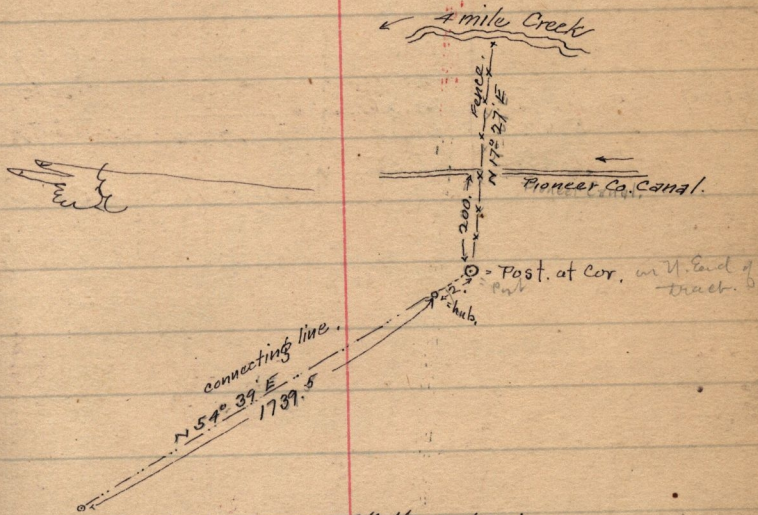 4 mile Creek
Fence.
N 17° 27' E
Pioneer Co. Canal.
200.
= Post. at Cor. on N. End of
Post tract.
2.
= hub.
connecting line.
N 54° 39' E
1739.5